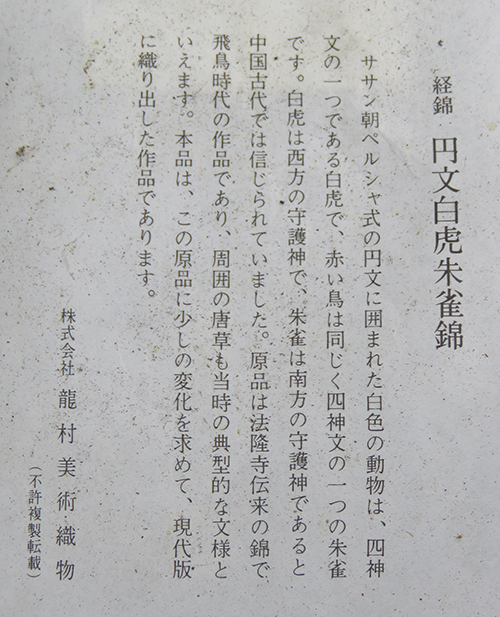 経錦 円文白虎朱雀錦
ササン朝ペルシャ式の円文に囲まれた白色の動物は、四神
文の一つである白虎で、赤い鳥は同じく四神文の一つの朱雀
です。白虎は西方の守護神で、朱雀は南方の守護神であると
中国古代では信じられていました。原品は法隆寺伝来の錦で
飛鳥時代の作品であり、周囲の唐草も当時の典型的な文様と
いえます。本品は、この原品に少しの変化を求めて、現代版
に織り出した作品であります。
株式会社 龍村美術織物
（不許複製転載）